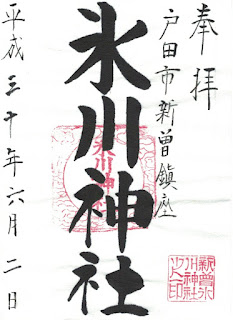 奉拝
戸田市新曽鎮座
氷川神社
氷川神社
平成三十年六月二日
新曽氷
川神社
之印